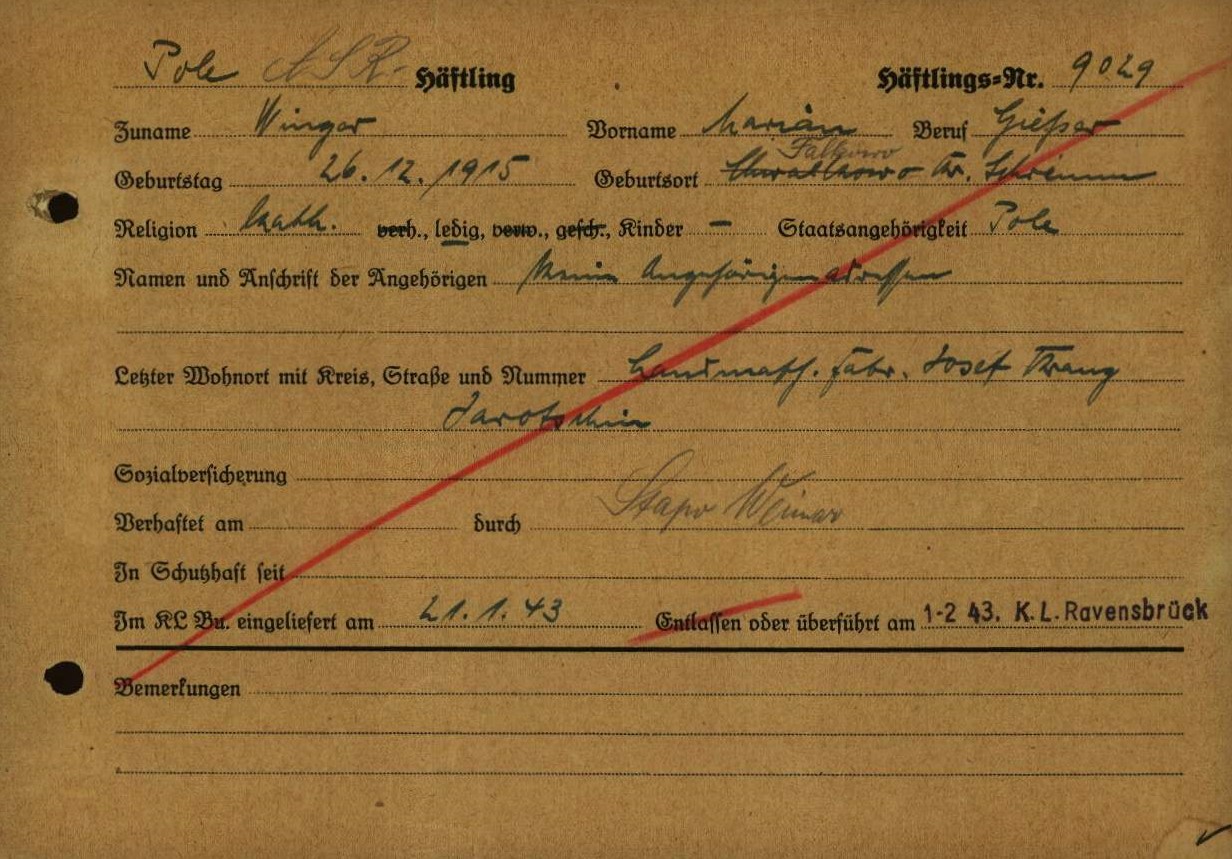 Pole ASR- Häftling Häftlings-Nr. 9029
Zuname Winger Vorname Marian Beruf Gießer
Geburtstag 26.12.1915 Geburtsort Falkowo Kr. Schrimm
Religion kath. verh., ledig, verw., gesch., Kinder – Staatsangehörigkeit Pole
Namen und Anschrift der Angehörigen Keine Angehörigenadressen
Letzter Wohnort mit Kreis, Straße und Nummer Landmasch. Fabr. Josef
Jarotschin
Sozialversicherung
Verhaftet am durch Stapo Weimar
In Schutzhaft seit
Im KL Bu. eingeliefert am 21.1.43 Entlassen oder überführt am 1-2 43. K.L. Ravensbrück
Bemerkungen